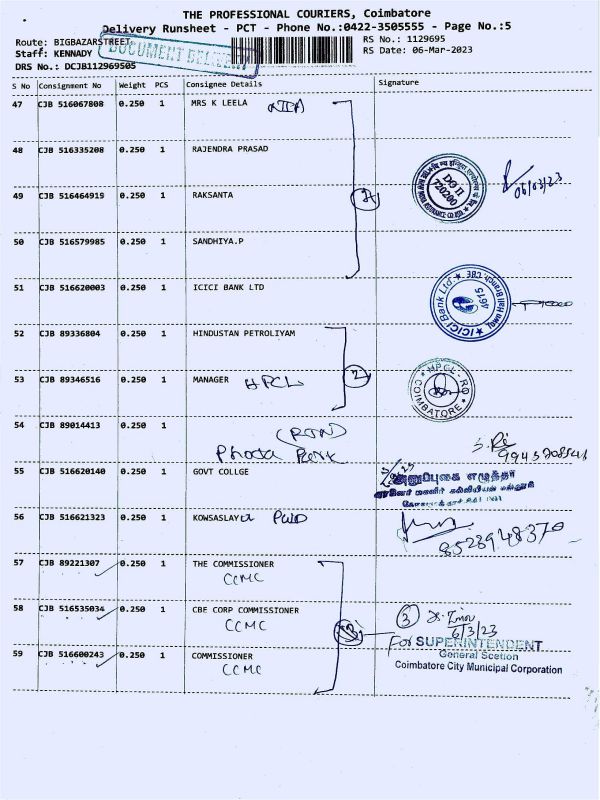 THE PROFESSIONAL COURIERS, Coimbatore
Delivery Runsheet - PCT - Phone No.:0422-3505555 - Page No.:5
Route: BIGBAZARSTREET
RS No.: 1129695
Staff: KENNADY
RS Date: 06-Mar-2023
DOCUMENT
DRS No.: DCJB112969505
S No Consignment No Weight PCS Consignee Details Signature
47 CJB 516067808 0.250 1 MRS K LEELA
48 CJB 516335208 0.250 1 RAJENDRA PRASAD
49 CJB 516464919 0.250 1 RAKSANTA
06/03/23
50 CJB 516579985 0.250 1 SANDHIYA.P
51 CJB 516620003 0.250 1 ICICI BANK LTD
ICICI Bank Ltd. Town Hall Branch CBE 4615
52 CJB 89336804 0.250 1 HINDUSTAN PETROLIYAM
2
53 CJB 89346516 0.250 1 MANAGER HPCL
HPCL-RO COIMBATORE
54 CJB 89014413 0.250 1
55 CJB 516620140 0.250 1 GOVT COLLGE
அனுப்புகை எழுத்தர்
56 CJB 516621323 0.250 1 KOWSASLAYA PWD
8523948370
57 CJB 89221307 0.250 1 THE COMMISSIONER
CCMC
58 CJB 516535034 0.250 1 CBE CORP COMMISSIONER
CCMC
3
6/3/23
For SUPERINTENDENT
59 CJB 516600243 0.250 1 COMMISSIONER
CCMC
General Scetion
Coimbatore City Municipal Corporation